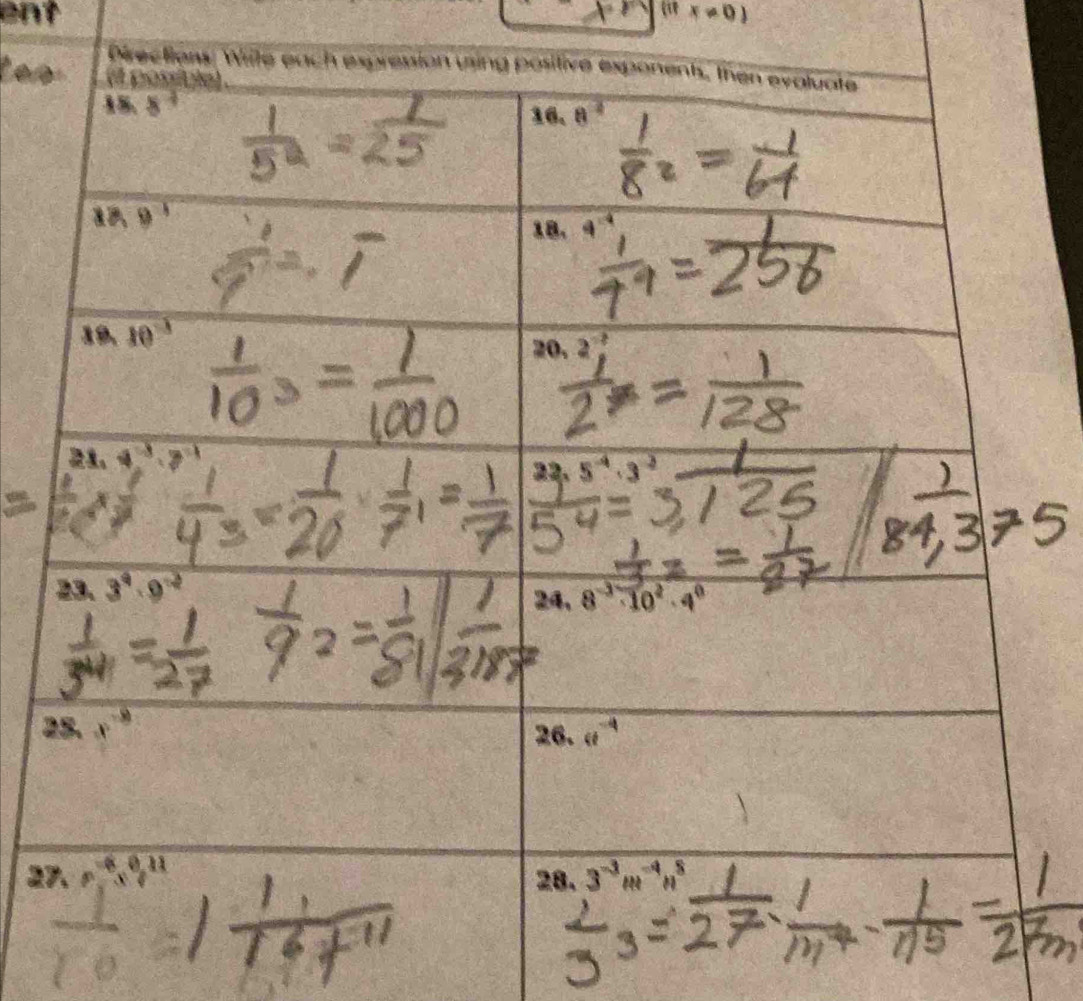 ent
(if x ≠ 0)
Directions: Write each expression using positive exponents, then evaluate
(if possible).
15. 5⁻²
1/5² = 1/25
16. 8⁻²
1/8² = 1/64
17. 9⁻¹
18. 4⁻⁴
1/4⁴ = 1/256
19. 10⁻³
1/10³ = 1/1000
20. 2⁻⁷
1/2⁷ = 1/128
21. 4⁻³ · 7⁻¹
1/4³ = 1/20 · 1/7¹ = 1/7
22. 5⁻⁴ · 3⁻³
1/5⁴ = 1/3,125 || 1/84,375
= 1/27
23. 3⁴ · 9⁻²
1/3⁴ = 1/27 1/9² = 1/81 || 1/2187
24. 8⁻³ · 10² · 4⁰
25. x⁻⁸
26. a⁻⁴
27.
28. 3⁻³m⁻⁴n⁵
1/3³ = 1/27 · 1/m⁴ · 1/n⁵ = 1/27m